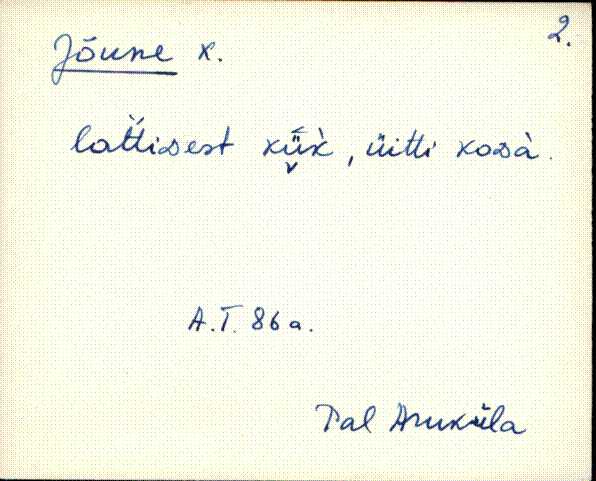 2.
Jõune k.
lattisest küük, üitti kosà.
A.T. 86 a.
Pal Aruküla